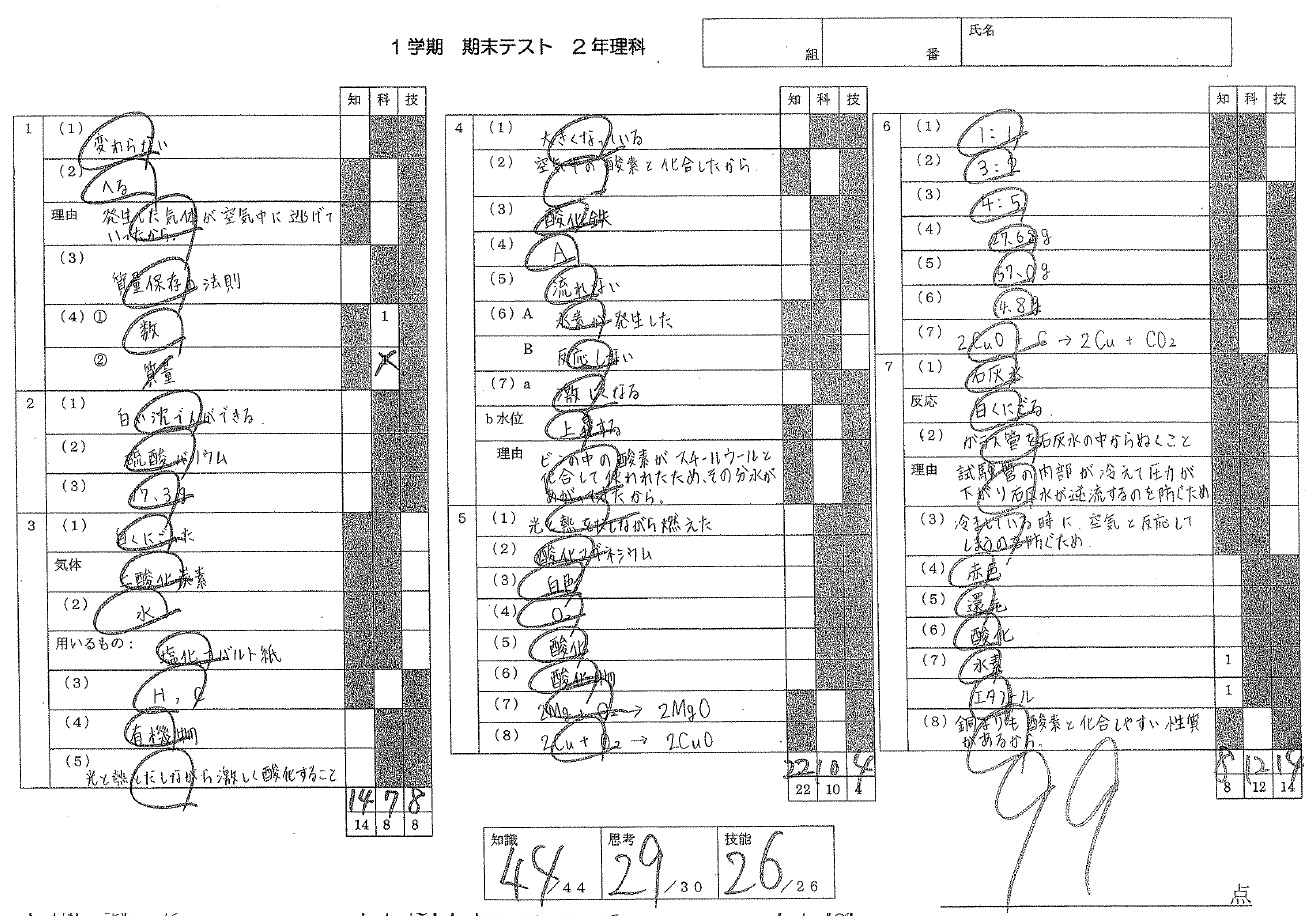 1学期 期末テスト 2年理科
組 番 氏名
知 科 技
1 (1) 変わらない
(2) へる
理由 発生した気体が空気中に逃げて
いったから。
(3) 質量保存の法則
(4) ① 数 1
② 質量
2 (1) 白い沈でんができる
(2) 硫酸バリウム
(3) 17.3g
3 (1) 白くにごった
気体 二酸化炭素
(2) 水
用いるもの: 塩化コバルト紙
(3) H, C
(4) 有機物
(5) 光と熱をだしながら激しく酸化すること
14 7 8
14 8 8
知 科 技
4 (1) 大きくなっている
(2) 空気中の酸素と化合したから
(3) 酸化鉄
(4) A
(5) 流れない
(6) A 水素が発生した
B 反応しない
(7) a 激しくなる
b 水位 上昇する
理由 ビンの中の酸素がスチールウールと
化合して使われたため、その分水が
から。
5 (1) 光と熱をだしながら燃えた
(2) 酸化マグネシウム
(3) 白色
(4) O₂
(5) 酸化
(6) 酸化物
(7) 2Mg + O₂ → 2MgO
(8) 2Cu + O₂ → 2CuO
22 10 4
22 10 4
知 科 技
6 (1) 1:1
(2) 3:2
(3) 4:5
(4) 27.6g
(5) 57.0g
(6) 4.8g
(7) 2CuO + C → 2Cu + CO₂
7 (1) 石灰水
反応 白くにごる
(2) ガラス管を石灰水の中からぬくこと
理由 試験管の内部が冷えて圧力が
下がり石灰水が逆流するのを防ぐため
(3) 冷ませている時に、空気と反応して
しまうのを防ぐため
(4) 赤色
(5) 還元
(6) 酸化
(7) 水素 1
エタノール 1
(8) 銅よりも酸素と化合しやすい性質
があるから。
8 12 14
8 12 14
知識 44/44 思考 29/30 技能 26/26
99 点